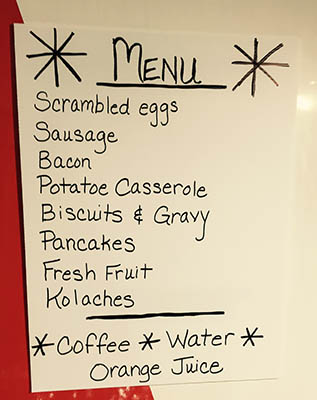 * MENU *
Scrambled eggs
Sausage
Bacon
Potatoe Casserole
Biscuits & Gravy
Pancakes
Fresh Fruit
Kolaches
* Coffee * Water *
Orange Juice